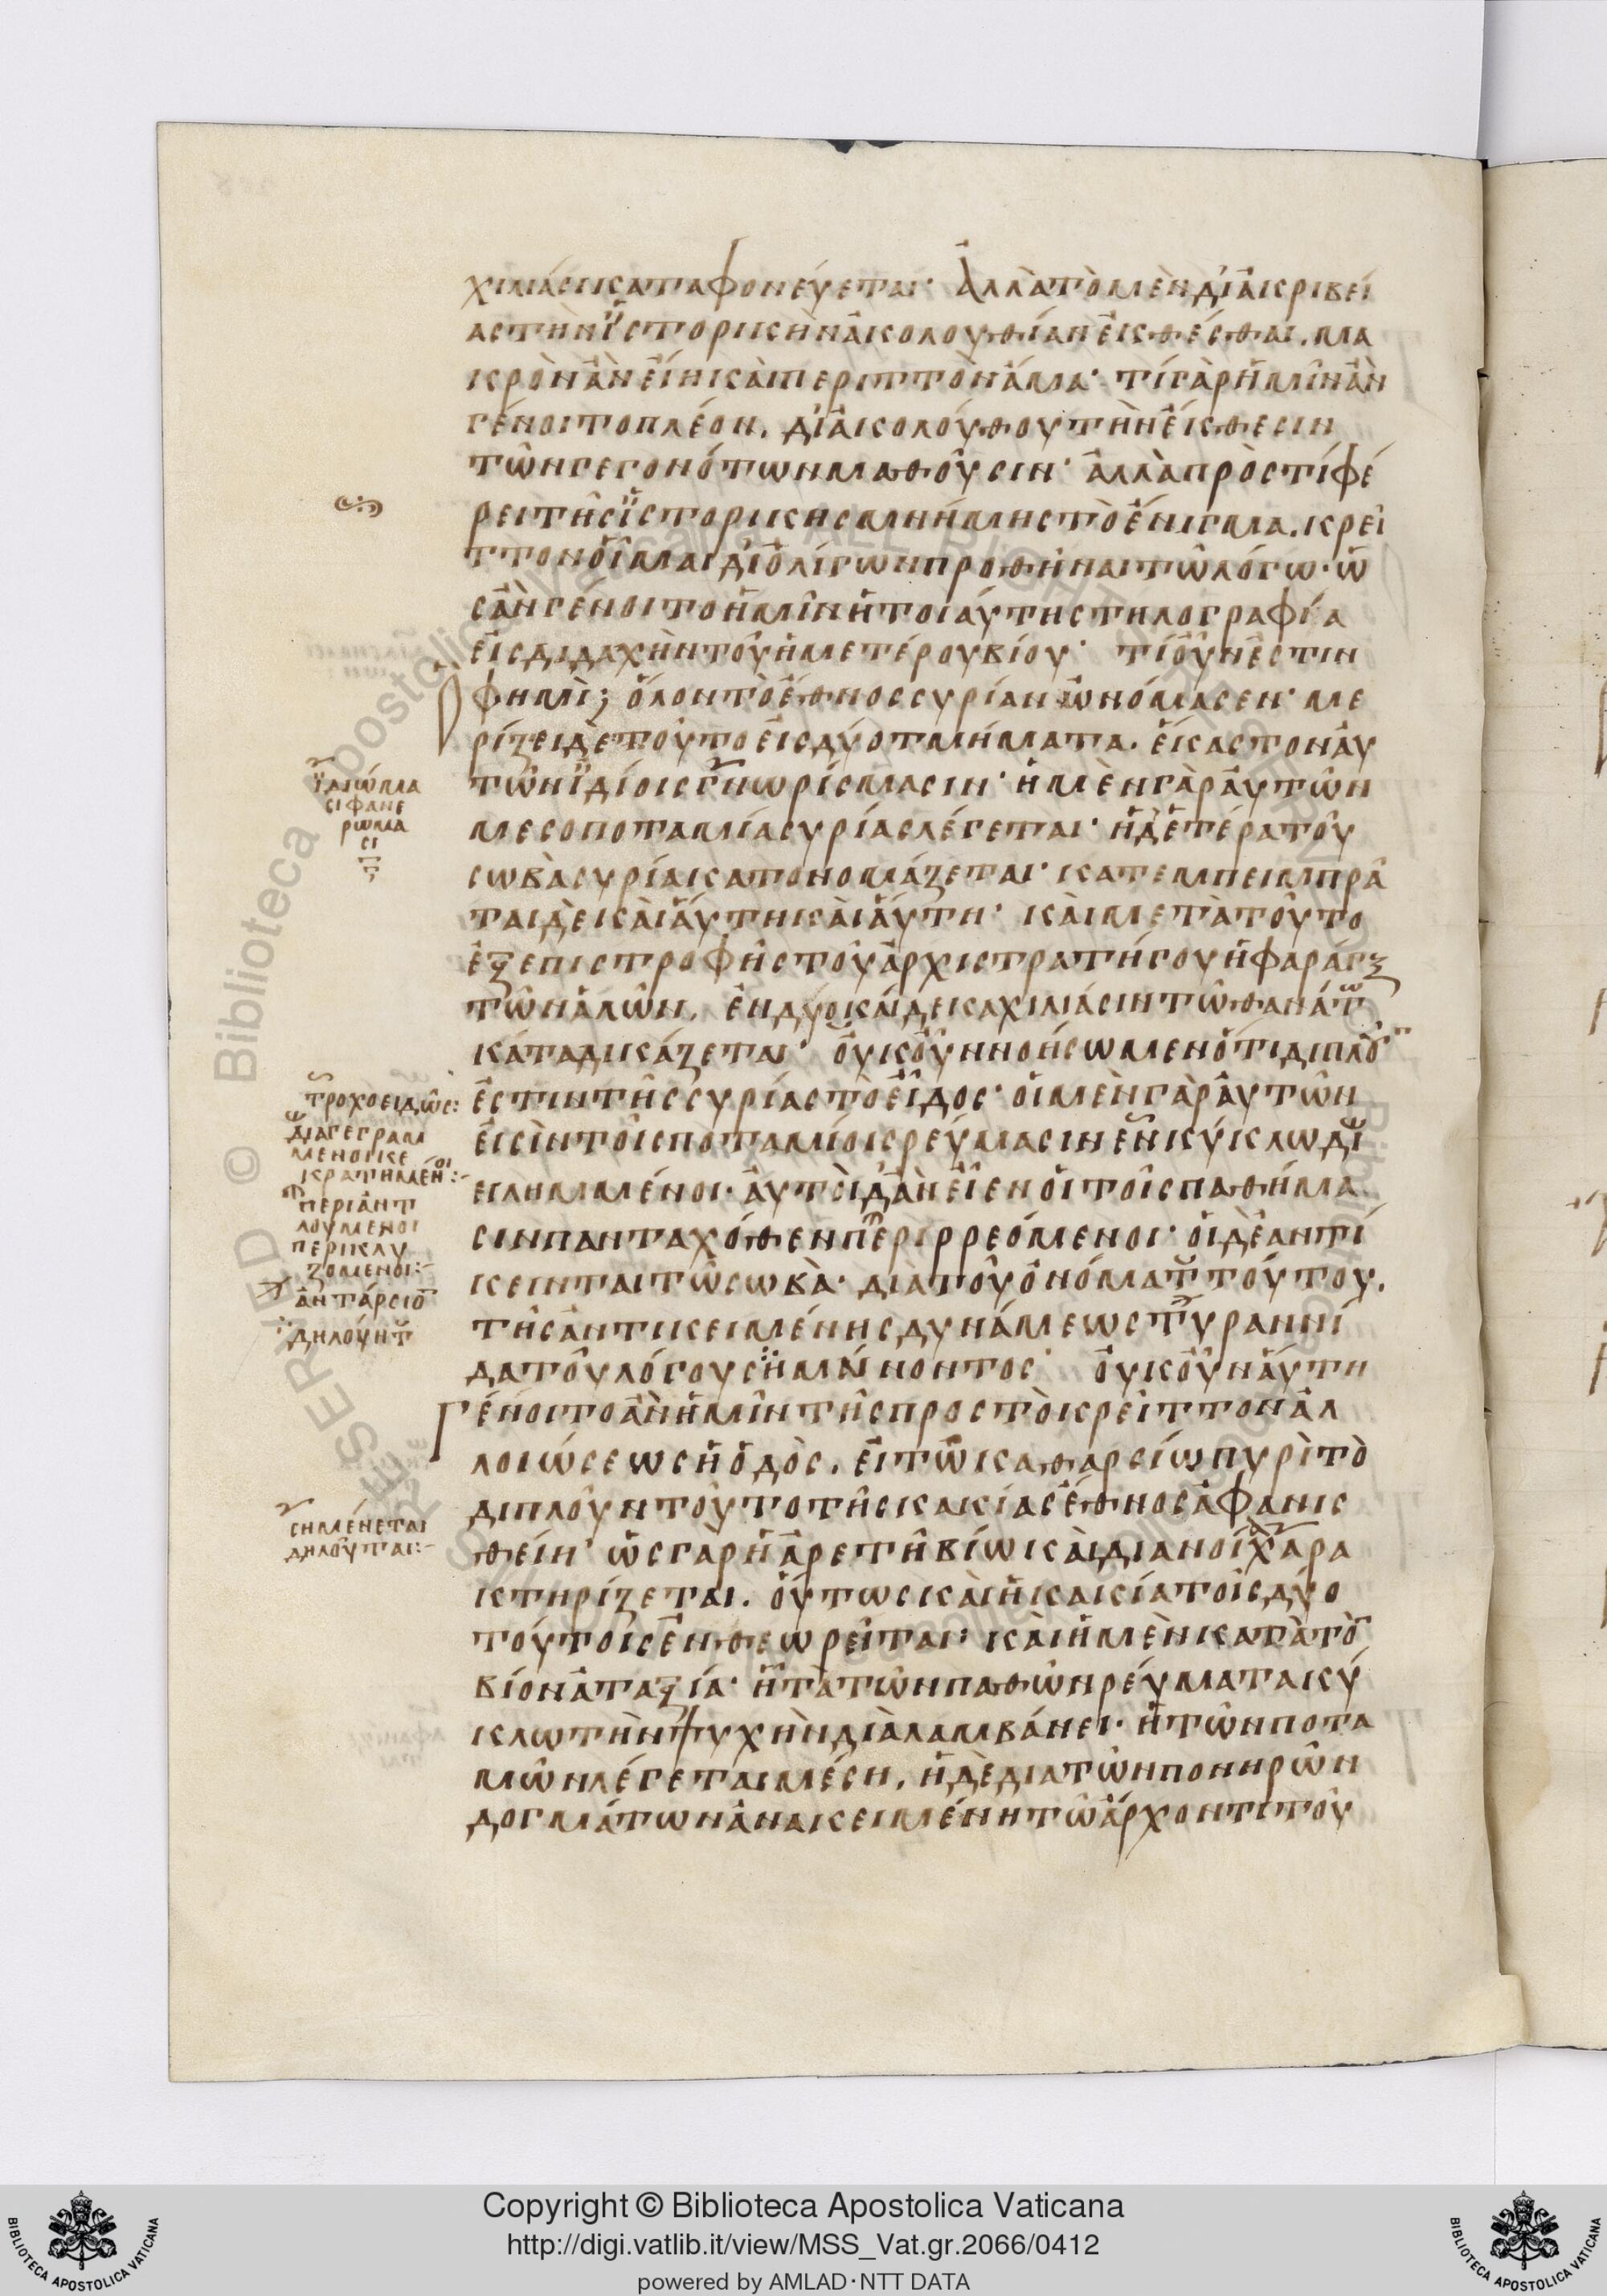 χιλιάσι καταφονεύεται· Ἀλλὰ τὸ μὲν δι' ἀκριβεί
ας τὴν ἱστορικὴν ἀκολουθίαν ἐκθέσθαι. μα
κρὸν ἂν εἴη κὰι περιττὸν ἅμα· τί γὰρ ἡμῖν ἂν
γένοιτο πλέον. δι' ἀκολούθου τὴν ἔκθεσιν
τῶν γεγονότων μαθοῦσιν· ἀλλὰ πρὸς τί φέ
ρει τῆς ἱστορικῆς μνήμης τὸ ἔνιγμα. κρεῖ
ττον οἶμαι δι' ὀλίγων προθῆναι τῷ λόγω· ὡ
ς ἂν γένοιτο ἡμῖν ἡ τοιαύτη στηλογραφία
εἰς διδαχὴν τοῦ ἡμετέρου βίου· τί οὖν ἐστιν
φημὶ; ὅλον τὸ ἔθνος συρίαν ὠνόμασεν· με
ρίζει δὲ τοῦτο εἰς δύο τμήματα. ἕκαστον αυ
τῶν ἰδίοις γνωρίσμασιν· ἡ μὲν γὰρ αὐτῶν
μεσοποταμία συρίας λέγεται· ἡ δ' ἑτέρα τοῦ
σωβὰ συρία κατονομάζεται· κατεμπείμπρα
ται δὲ κὰι ἅυτη κὰι ἅυτη· κὰι μετὰ τοῦτο
ἐξ επιστροφῆς τοῦ ἀρχιστρατήγου ἡ φαράγξ
τῶν ἁλῶν. ἐν δυοκαίδεκα χιλιάσιν τῶ θανάτω
κάταδικάζεται· οὐκοῦν νοήσωμεν ὅτι διπλοῦν
ἐστιν τῆς συρίας τὸ εἶδος· οἱ μὲν γὰρ αὐτῶν
εἰσὶν τοῖς ποταμίοις ρεύμασιν ἐν κύκλω δι
ειλημμένοι. ἀυτοὶ δ' ἂν εἶεν οἱ τοῖς παθήμα
σιν πανταχόθεν περιρρεόμενοι· οἱ δὲ ἀντί
κεινται τῶ σωβὰ· διὰ τοῦ ὀνόματος τούτου.
τῆς ἀντικειμένης δυνάμεως τυραννί
δα τοῦ λόγου σημαίνοντος· οὐκοῦν ἅυτη
Γένοιτο ἂν ἡμῖν τῆς προς τὸ κρεῖττον ἀλ
λοιώσεως ἡ ὁδὸς. εἰ τῶ καθαρσίω πυρὶ τὸ
διπλοῦν τοῦτο τῆς κακίας ἔθνος ἀφανισ
θείη· ὡς γὰρ ἡ ἀρετὴ βίω κὰι διανοία χαρα
κτηρίζεται. οὕτως κὰι ἡ κακία τοῖς δύο
τούτοις ἐνθεωρεῖται· κὰι ἡ μὲν κατὰ τὸν
βίον ἀταξία· ἡ τὰ τῶν παθῶν ρεύματα κύ
κλω τὴν ψυχὴν διὰλαμβάνει. ἡ τῶν ποτα
μῶν λέγεται μέση. ἡ δὲ δια τῶν πονηρῶν
δογμάτων ἀνακειμένη τῶ ἄρχοντι τοῦ
φανε
ρωμα
σι
τροχοειδῶς:
διαγεγραμ
μενοι κε
κρατημένοι:-
περιαντ
λουμενοι
περικλυ
ζομενοι:-
ἀντάρσιον
δηλοῦντος
σημένεται
δηλοῦται:-
Copyright © Biblioteca Apostolica Vaticana
http://digi.vatlib.it/view/MSS_Vat.gr.2066/0412
powered by AMLAD·NTT DATA
BIBLIOTECA APOSTOLICA VATICANA
BIBLIOTECA APOSTOLICA VATICANA